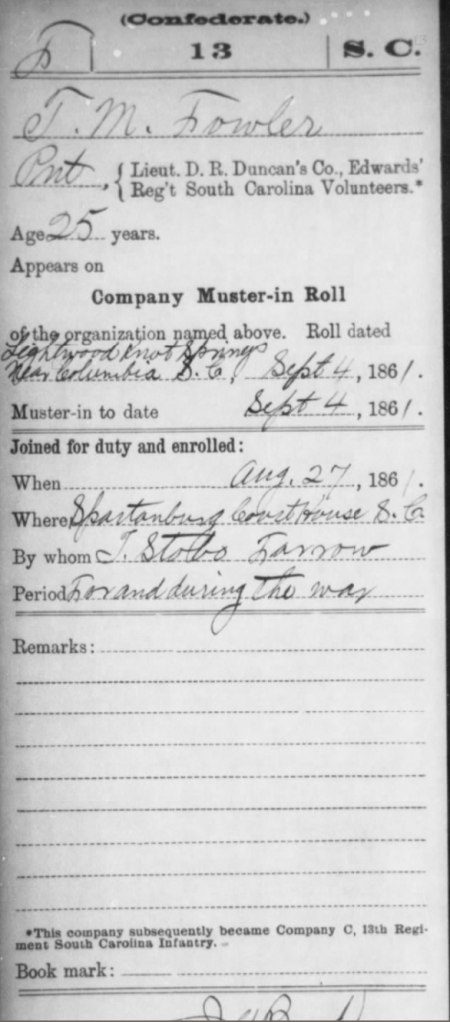 (Confederate.)
F 13 S. C.
T. M. Fowler
Pvt, { Lieut. D. R. Duncan's Co., Edwards'
Reg't South Carolina Volunteers.*
Age 25 years.
Appears on
Company Muster-in Roll
of the organization named above. Roll dated
Lightwood Knot Springs
Near Columbia S. C., Sept 4, 1861.
Muster-in to date Sept 4, 1861.
Joined for duty and enrolled:
When Aug. 27, 1861.
Where Spartanburg Court House S. C
By whom J. Stobo Farrow
Period For and during the war
Remarks:
*This company subsequently became Company C, 13th Regi-
ment South Carolina Infantry.
Book mark: